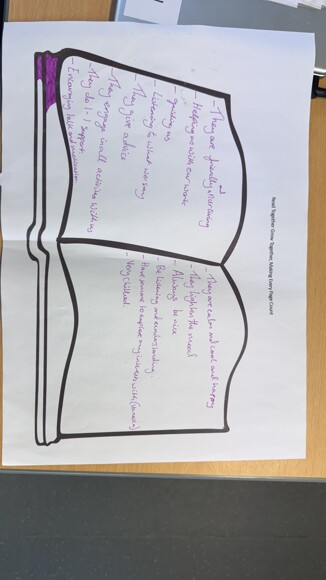 Read Together Grow Together, Making Every Page Count
- They are friendly and
- Helping us with our work
- Listening to what we say
- They give advice
- They engage in all activities with us
- They do 1-1 support.
- Encouraging talk and
- They are calm and cool and happy
- They lighten the mood
- Always be nice
- Be listening and understanding
- Have someone to explore my interests with
- Very chilled.